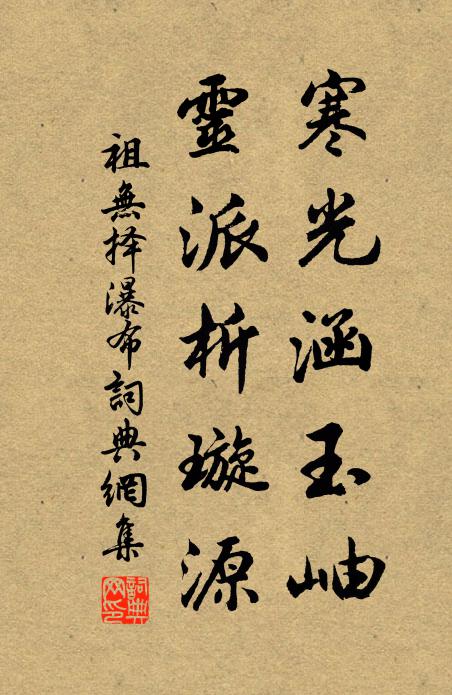 寒光涵玉岫
靈派析璇源
祖無择瀑布詞典網集
詞典网印